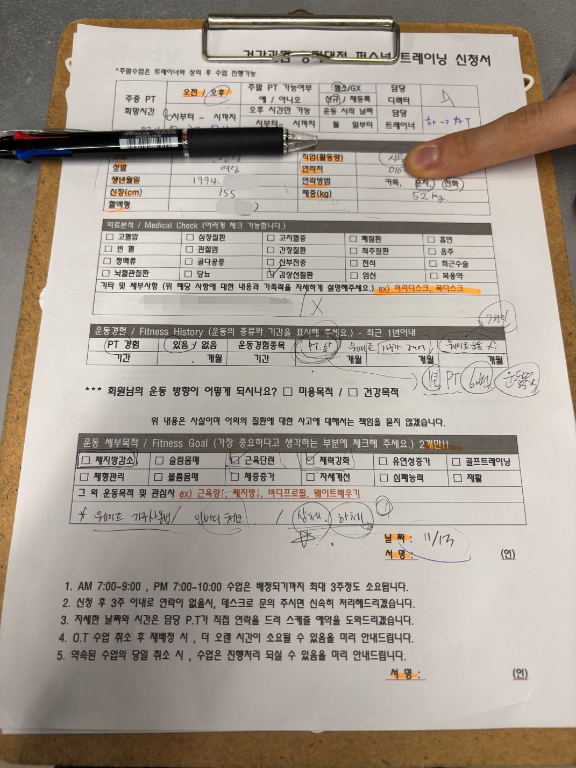 건강과함 행복대전 퍼스널 트레이닝 신청서
*주말수업은 트레이너와 상의 후 수업 진행가능
주중 PT 희망시간 오전 / 오후 주말 PT 가능여부 헬스/GX 담당 디렉터
예 / 아니오 신규 / 재등록
시부터 - 시까지 오후 시간만 가능 운동 시작 날짜 담당 트레이너
시부터 - 시까지 월 일부터
성별 여성 직업(활동량)
연락처 010
생년월일 1994. 연락방법 카톡, 문자, 전화
신장(cm) 155 체중(kg) 52 kg.
혈액형
의료분석 / Medical Check (여러개 체크 가능합니다.)
□ 고혈압 □ 심장질환 □ 고지혈증 □ 폐질환 □ 흡연
□ 빈 혈 □ 관절염 □ 간장질환 □ 척주질환 □ 음주
□ 정맥류 □ 골다공증 □ 신부전증 □ 천식 □ 최근수술
□ 뇌혈관질환 □ 당뇨 ☑ 갑상선질환 □ 임신 □ 복용약
기타 및 세부사항 (위 해당 사항에 대한 내용과 가족력을 자세하게 설명해주세요.) ex) 허리디스크, 목디스크
X
운동경험 / Fitness History (운동의 종류와 기간을 표시해 주세요.) - 최근 1년이내
PT 경험 있음 / 없음 운동경험종목
기간 .개월 기간 개월 개월 개월
PT 60번
*** 회원님의 운동 방향이 어떻게 되시나요? □ 미용목적 / □ 건강목적
위 내용은 사실이며 이외의 질환에 대한 사고에 대해서는 책임을 묻지 않겠습니다.
운동 세부목적 / Fitness Goal (가장 중요하다고 생각하는 부분에 체크해 주세요.) 2개만!!
□ 체지방감소 □ 슬림몸매 ☑ 근육단련 ☑ 체력강화 □ 유연성증가 □ 골프트레이닝
□ 체형관리 □ 볼륨몸매 □ 체중증가 □ 자세개선 □ 심폐능력 □ 재활
그 외 운동목적 및 관심사 ex) 근육량↑, 체지방↓, 바디프로필, 웨이트배우기
* 웨이트 기구사용법 / / 상체, 하체
날 짜 : 11/13
서 명 : (인)
1. AM 7:00~9:00 , PM 7:00~10:00 수업은 배정되기까지 최대 3주정도 소요됩니다.
2. 신청 후 3주 이내로 연락이 없을시, 데스크로 문의 주시면 신속히 처리해드리겠습니다.
3. 자세한 날짜와 시간은 담당 P.T가 직접 연락을 드려 스케쥴 예약을 도와드리겠습니다.
4. O.T 수업 취소 후 재배정 시 , 더 오랜 시간이 소요될 수 있음을 미리 안내드립니다.
5. 약속된 수업의 당일 취소 시 , 수업은 진행처리 되실 수 있음을 미리 안내드립니다.
서 명 : (인)